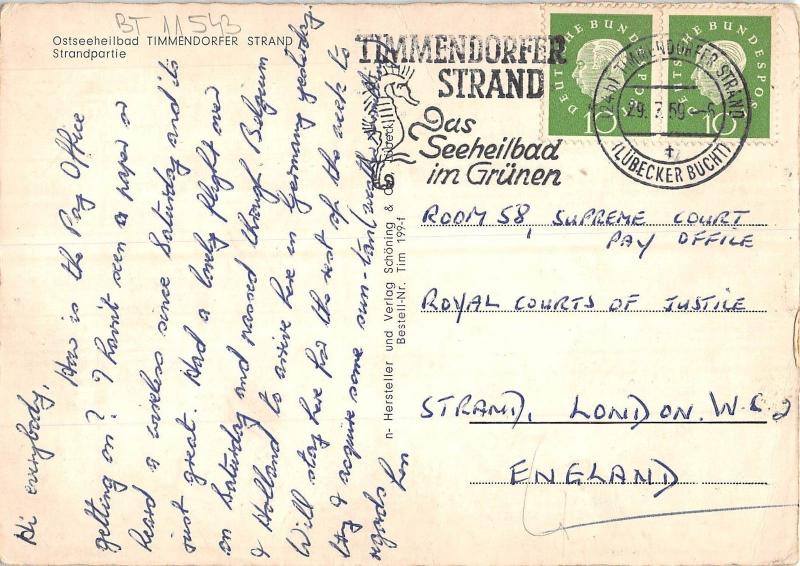 BT 11543
Ostseeheilbad TIMMENDORFER STRAND
Strandpartie
TIMMENDORFER
STRAND
Das
Seeheilbad
im Grünen
DEUTSCHE BUNDESPOST
10
DEUTSCHE BUNDESPOST
10
(24b) TIMMENDORFER STRAND
29.7.59.-6
(LÜBECKER BUCHT)
Hi everybody,
How is the Pay Office
getting on? I haven't seen a paper or
heard a wireless since Saturday and its
just great. Had a lovely flight over
on Saturday and passed through Belgium
& Holland to arrive here in Germany yesterday.
Will stay here for the rest of the week to
try & acquire some sun-tan (weather
regards
n- Hersteller und Verlag Schöning & Co., Lübeck
Bestell-Nr. Tim 199-f
ROOM 58, SUPREME COURT
PAY OFFICE
ROYAL COURTS OF JUSTICE
STRAND, LONDON. W.C.2
ENGLAND